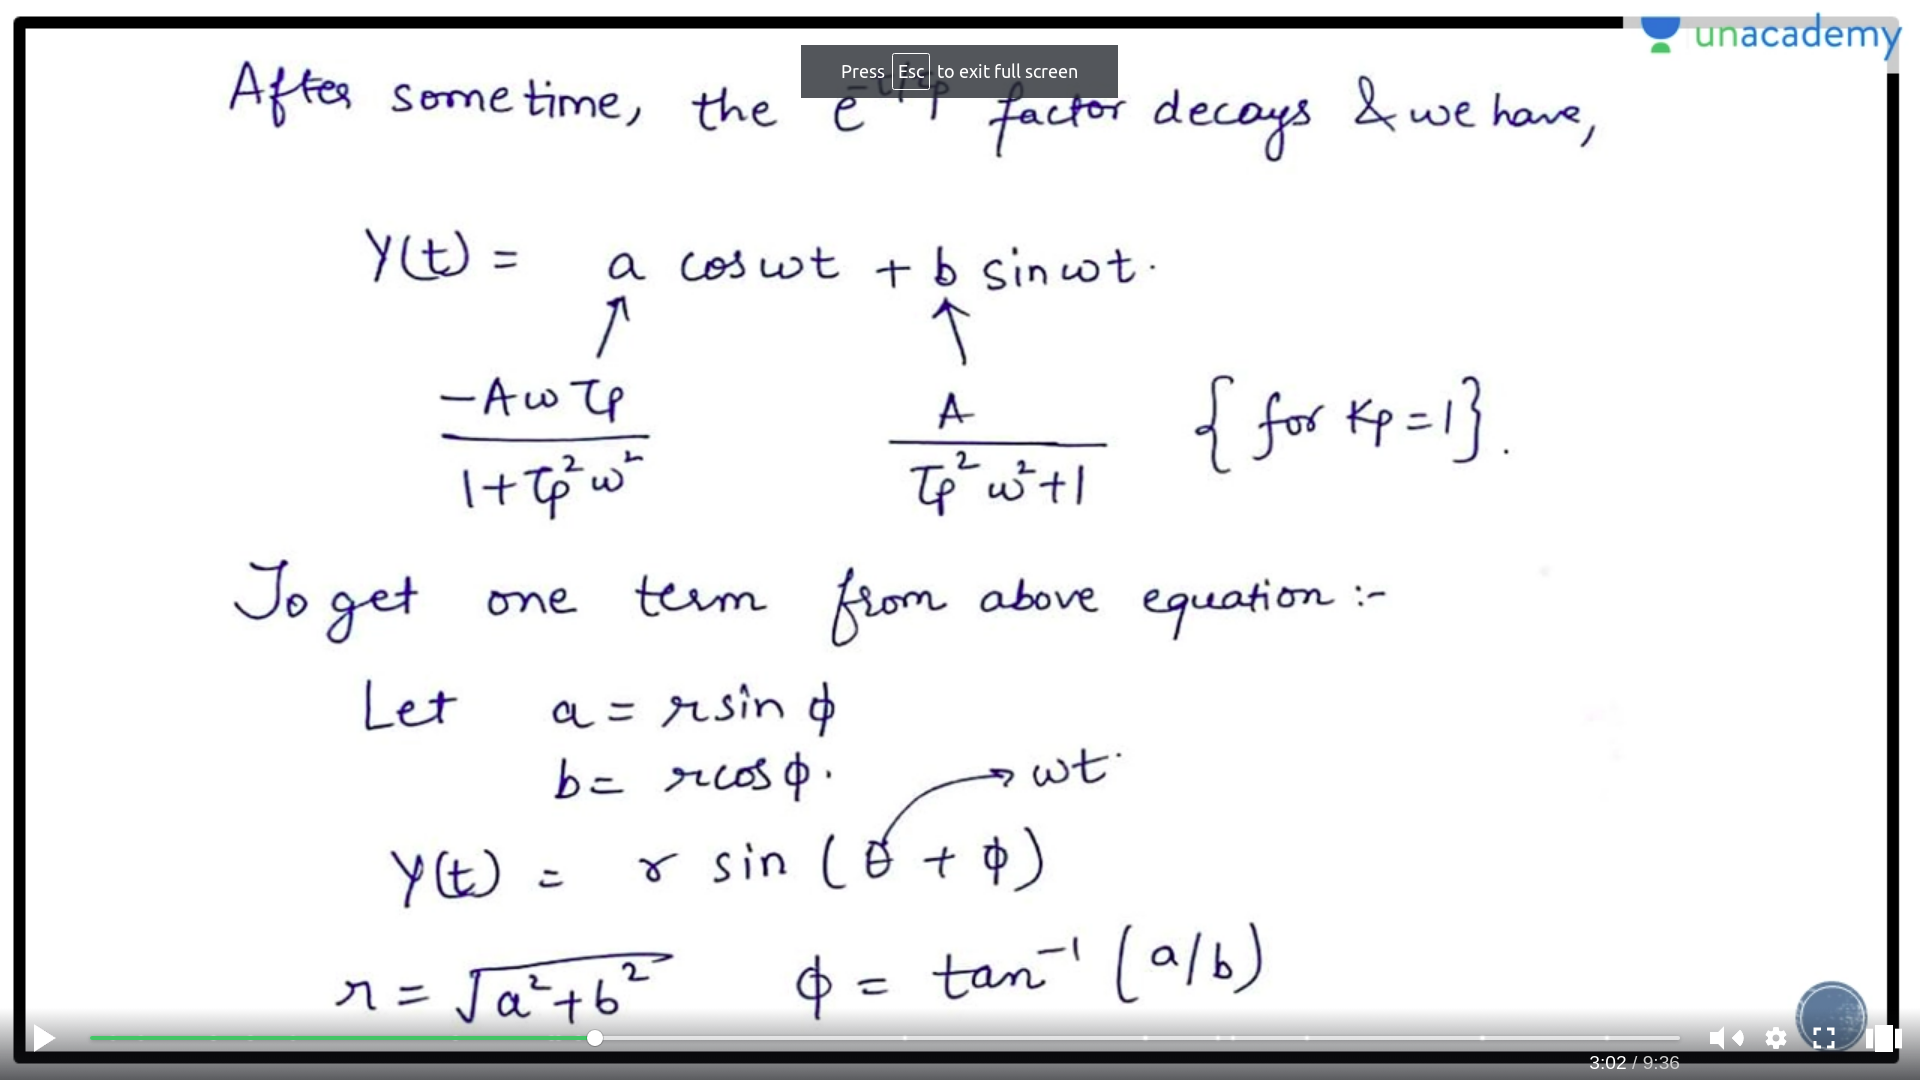 unacademy
Press Esc to exit full screen
After sometime, the e factor decays & we have,
Y(t) = a cos ωt + b sin ωt.
-Aωτp / 1+τp²ω² A / τp²ω²+1 { for Kp = 1}.
To get one term from above equation :-
Let a = r sin ϕ
b = r cos ϕ.
ωt
Y(t) = r sin (θ + ϕ)
r = √a²+b² ϕ = tan⁻¹ (a/b)
3:02 / 9:36